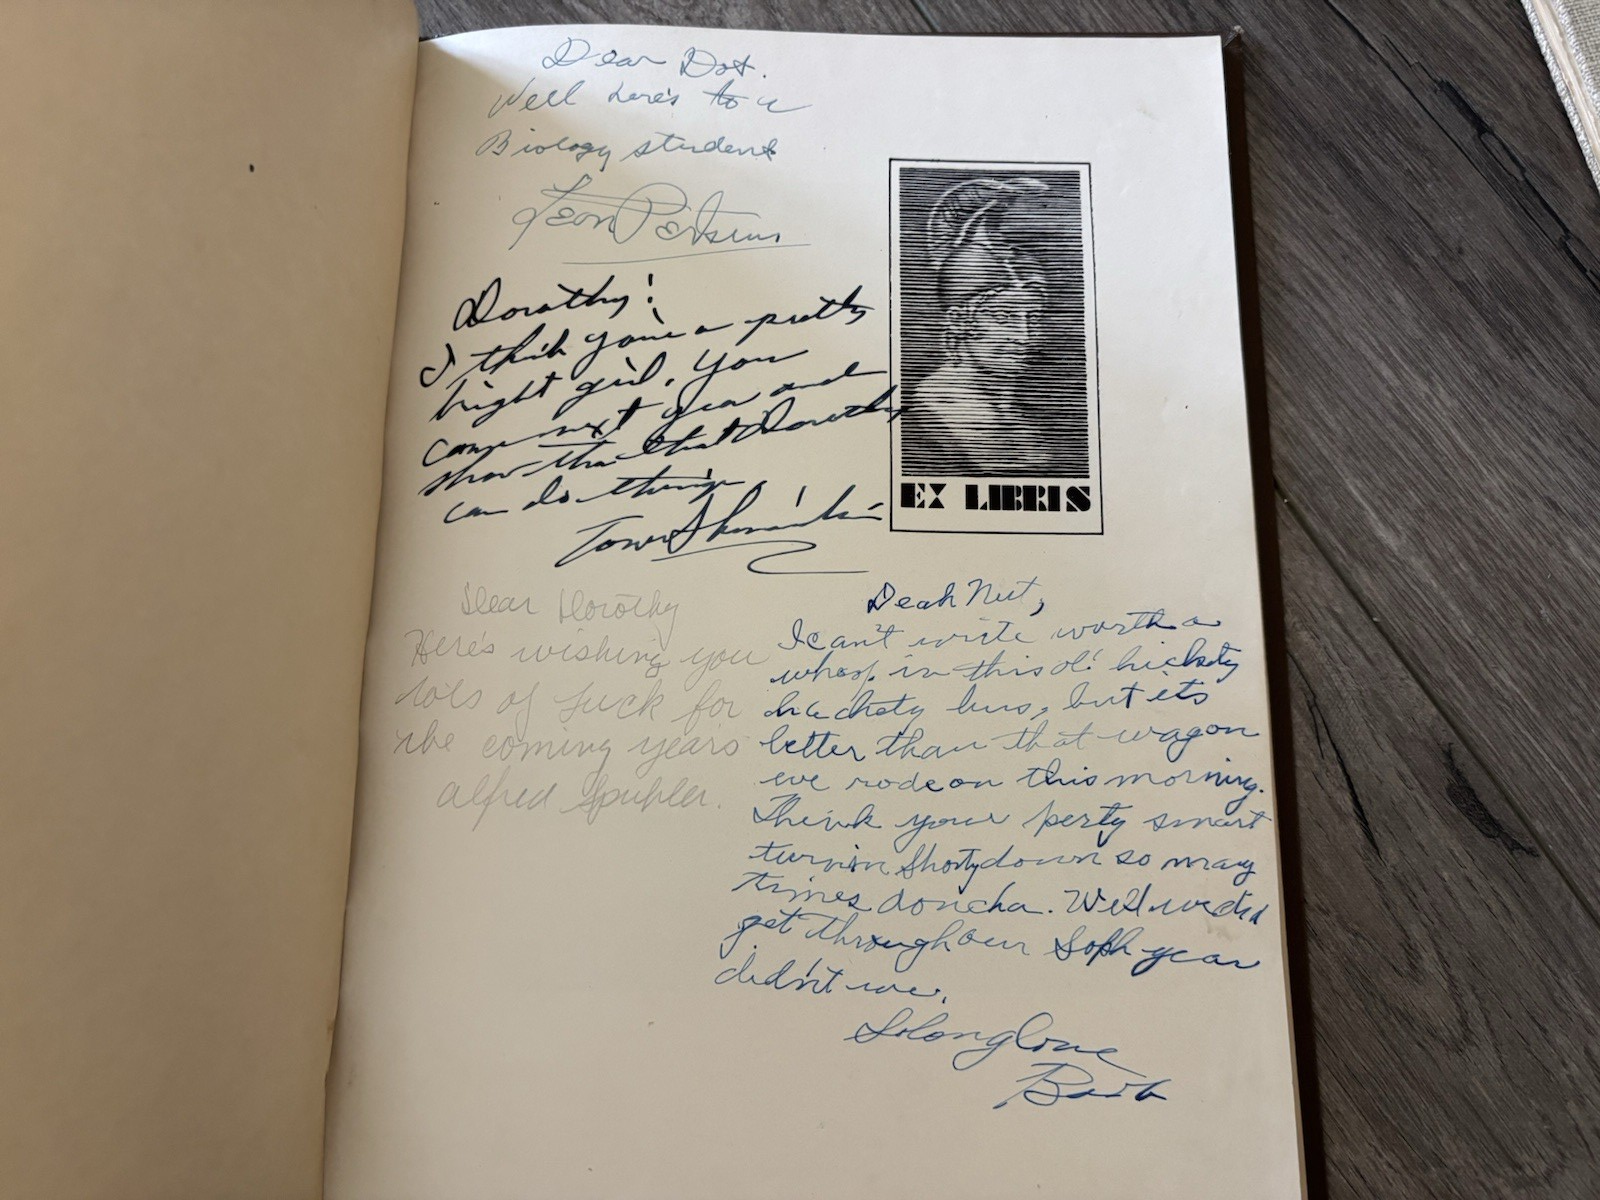 Dear Dot.
Well here's to a
Biology student
Leon Perkins
Dorothy!
I think you're a pretty
bright girl. You
come next year and
show the that Dorothy
can do things.
Dear Dorothy
Here's wishing you
lots of luck for
the coming years
Alfred Spuhler.
EX LIBRIS
Deah Nut,
I can't write worth a
whoop in this ol' hickety
hackety bus, but its
better than that wagon
we rode on this morning.
Think your perty smart
turnin Shorty down so many
times doncha. Well we did
get through our Soph year
didn't we.
Solong Love
Barb